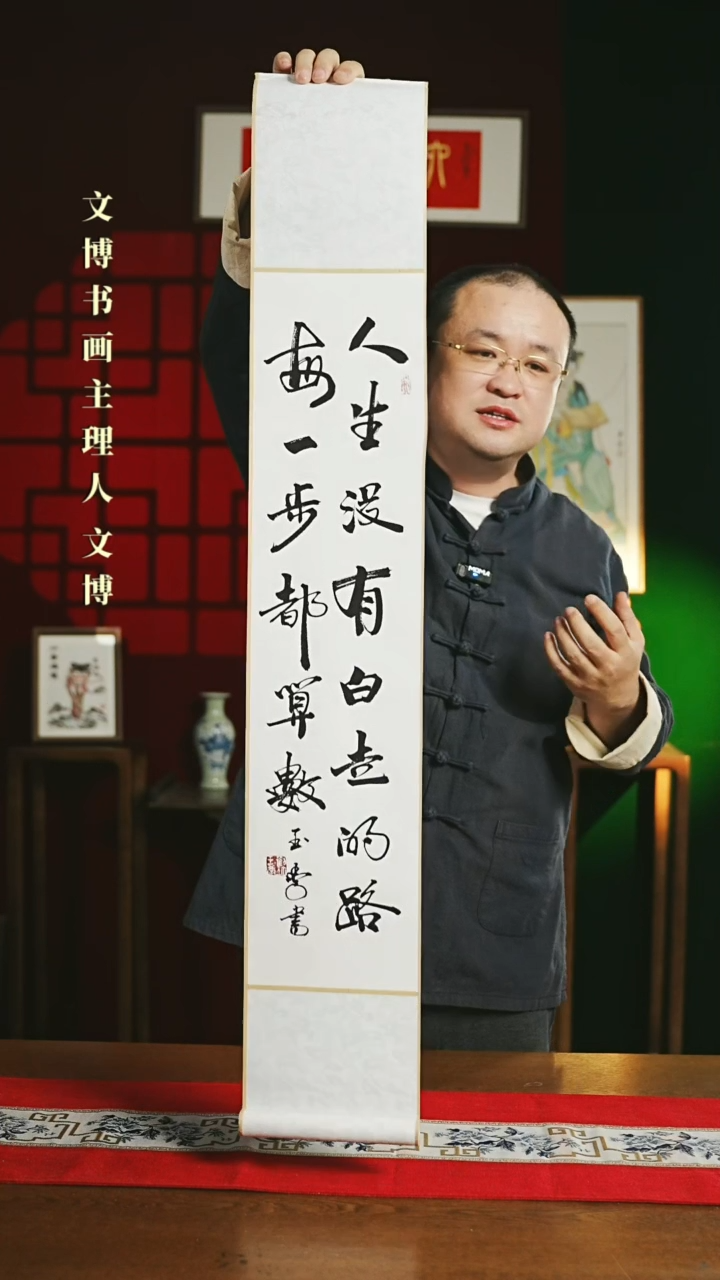 文博书画主理人文博
人生没有白走的路
每一步都算數
玉秀書
MOMA